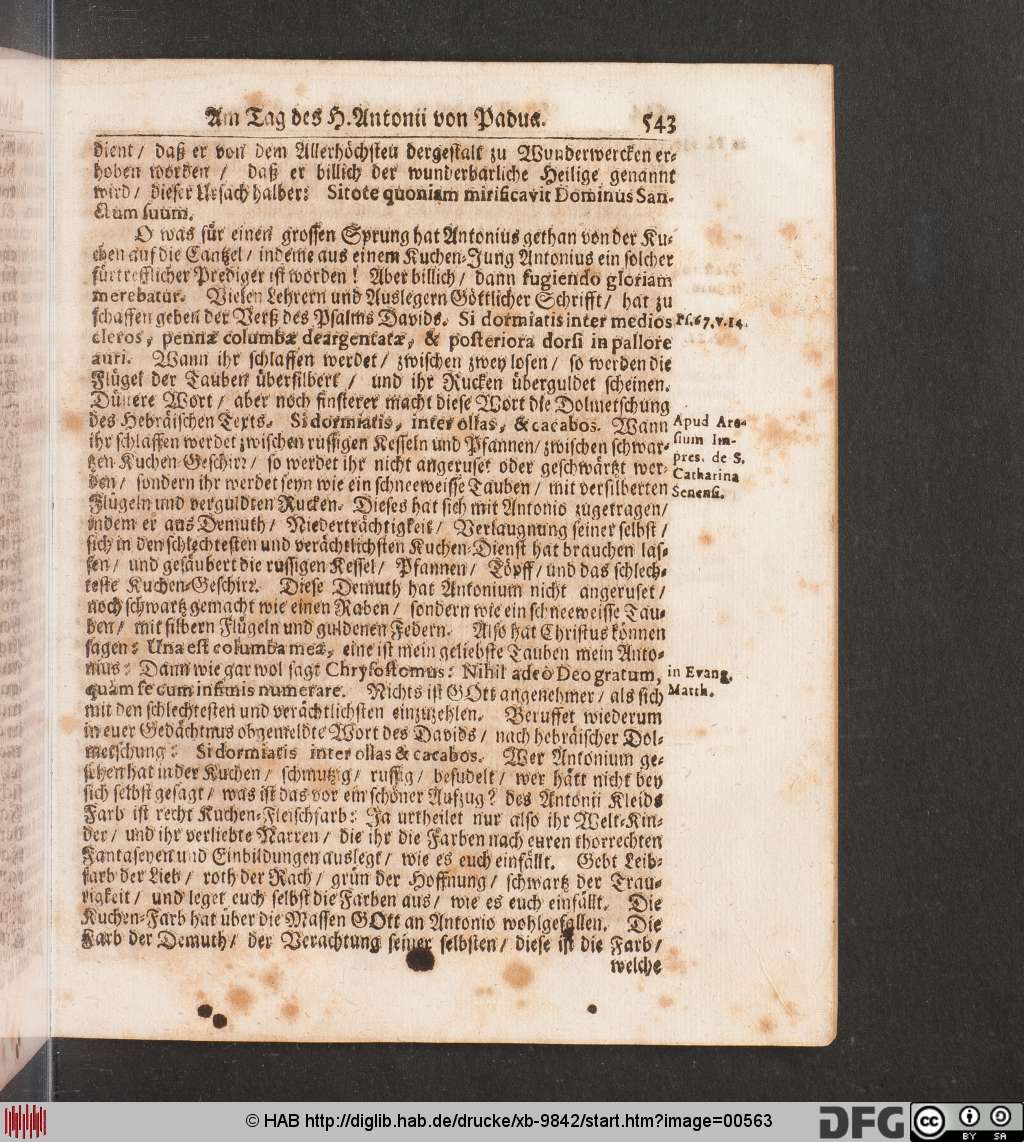 Am Tag des H. Antonii von Padua. 543
dient / daß er von dem Allerhöchsten dergestalt zu Wunderwercken er-
hoben worden / daß er billich der wunderbarliche Heilige genannt
wird / dieser Ursach halber: Sitote quoniam mirificavit Dominus San-
ctum suum.
O was für einen grossen Sprung hat Antonius gethan von der Ku-
chen auf die Cantzel / indeme aus einem Kuchen-Jung Antonius ein solcher
fürtrefflicher Prediger ist worden! Aber billich / dann fugiendo gloriam
merebatur. Vielen Lehrern und Auslegern Göttlicher Schrifft / hat zu
schaffen geben der Verß des Psalms Davids. Si dormiatis inter medios Ps. 67. v. 14.
cleros, pennæ columbæ deargentatæ, & posteriora dorsi in pallore
auri. Wann ihr schlaffen werdet / zwischen zwey losen / so werden die
Flügel der Tauben übersilbert / und ihr Rucken überguldet scheinen.
Dunere Wort / aber noch finsterer macht diese Wort die Dolmetschung
des Hebräischen Texts. Si dormiatis, inter ollas, & cacabos. Wann
ihr schlaffen werdet zwischen russigen Kesseln und Pfannen / zwischen schwar-
tzen Kuchen-Geschirr / so werdet ihr nicht angeruset oder geschwärtzt wer-
den / sondern ihr werdet seyn wie ein schneeweisse Tauben / mit versilberten
Flügeln und verguldten Rucken. Dieses hat sich mit Antonio zugetragen /
indem er aus Demuth / Niederträchtigkeit / Verlaugnung seiner selbst /
sich in den schlechtesten und verächtlichsten Kuchen-Dienst hat brauchen las-
sen / und gesäubert die russigen Kessel / Pfannen / Töpff / und das schlech-
teste Kuchen-Geschirr. Diese Demuth hat Antonium nicht angeruset /
noch schwartz gemacht wie einen Raben / sondern wie ein schneeweisse Tau-
ben / mit silbern Flügeln und guldenen Federn. Also hat Christus können
sagen: Una est columba mea, eine ist mein geliebste Tauben mein Anto-
nius: Dann wie gar wol sagt Chrysostomus: Nihil adeò Deo gratum,
quàm se cum infimis numerare. Nichts ist GOtt angenehmer / als sich
mit den schlechtesten und verächtlichsten einzuzehlen. Beruffet wiederum
in euer Gedächtnus obgemeldte Wort des Davids / nach hebräischer Dol-
metschung: Si dormiatis inter ollas & cacabos. Wer Antonium ge-
sehen hat in der Kuchen / schmutzig / russig / besudelt / wer hätt nicht bey
sich selbst gesagt / was ist das vor ein schöner Aufzug? des Antonii Kleids
Farb ist recht Kuchen-Fleischfarb: Ja urtheilet nur also ihr Welt-Kin-
der / und ihr verliebte Narren / die ihr die Farben nach euren thorrechten
Fantaseyen und Einbildungen auslegt / wie es euch einfällt. Gebt Leib-
farb der Lieb / roth der Rach / grün der Hoffnung / schwartz der Trau-
rigkeit / und leget euch selbst die Farben aus / wie es euch einfällt. Die
Kuchen-Farb hat über die Massen GOtt an Antonio wohlgefallen. Die
Farb der Demuth / der Verachtung seiner selbsten / diese ist die Farb /
welche
Apud Are-
sium Im-
pres. de S.
Catharina
Senensi.
in Evang.
Matth.
© HAB http://diglib.hab.de/drucke/xb-9842/start.htm?image=00563
DFG
cc BY SA